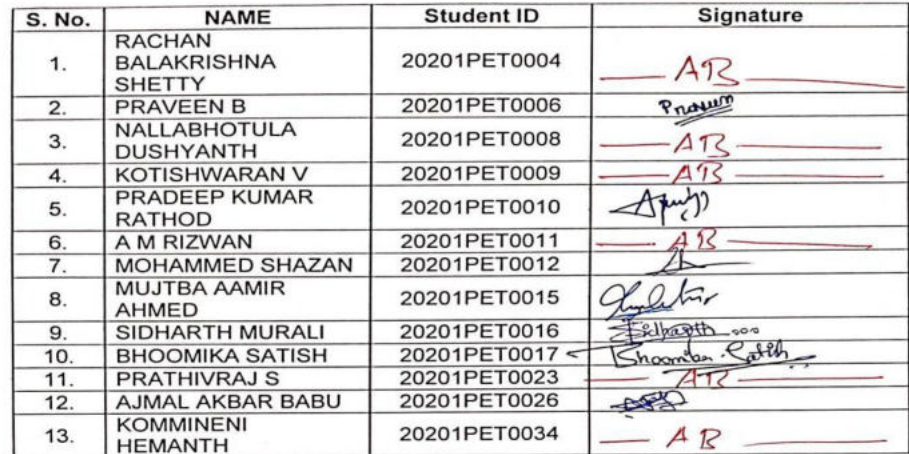 S. No. NAME Student ID Signature
RACHAN
1. BALAKRISHNA 20201PET0004 AB
SHETTY
2. PRAVEEN B 20201PET0006 Praveen
NALLABHOTULA
3. DUSHYANTH 20201PET0008 AB
4. KOTISHWARAN V 20201PET0009 AB
PRADEEP KUMAR
5. RATHOD 20201PET0010
6. A M RIZWAN 20201PET0011 AB
7. MOHAMMED SHAZAN 20201PET0012
MUJTBA AAMIR
8. AHMED 20201PET0015
9. SIDHARTH MURALI 20201PET0016 Sidharth
10. BHOOMIKA SATISH 20201PET0017 Bhoomika Satish
11. PRATHIVRAJ S 20201PET0023 AB
12. AJMAL AKBAR BABU 20201PET0026
KOMMINENI
13. HEMANTH 20201PET0034 AB